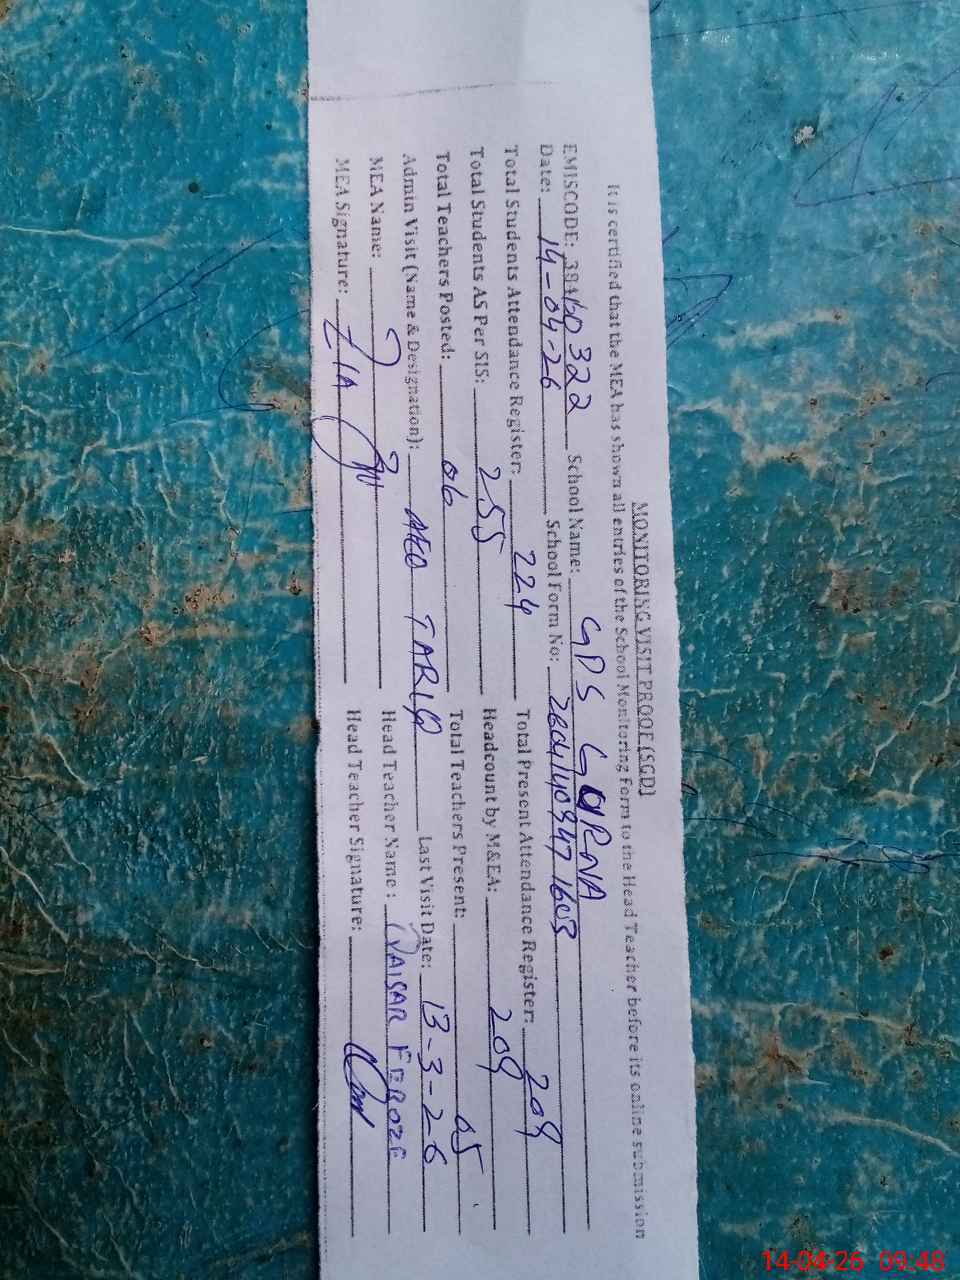 MONITORING VISIT PROOF (SGD)
It is certified that the MEA has shown all entries of the School Monitoring Form to the Head Teacher before its online submission
EMISCODE: 38460322 School Name: GPS GURNA
Date: 14-04-26 School Form No:
Total Students Attendance Register: 224 Total Present Attendance Register: 209
Total Students AS Per SIS: 255 Headcount by M&EA: 209
Total Teachers Posted: 06 Total Teachers Present: 05
Admin Visit (Name & Designation): AEO TARIQ Last Visit Date: 13-3-26
MEA Name: Head Teacher Name: QAISAR FEROZE
MEA Signature: ZIA Head Teacher Signature:
14-04-26 09:48